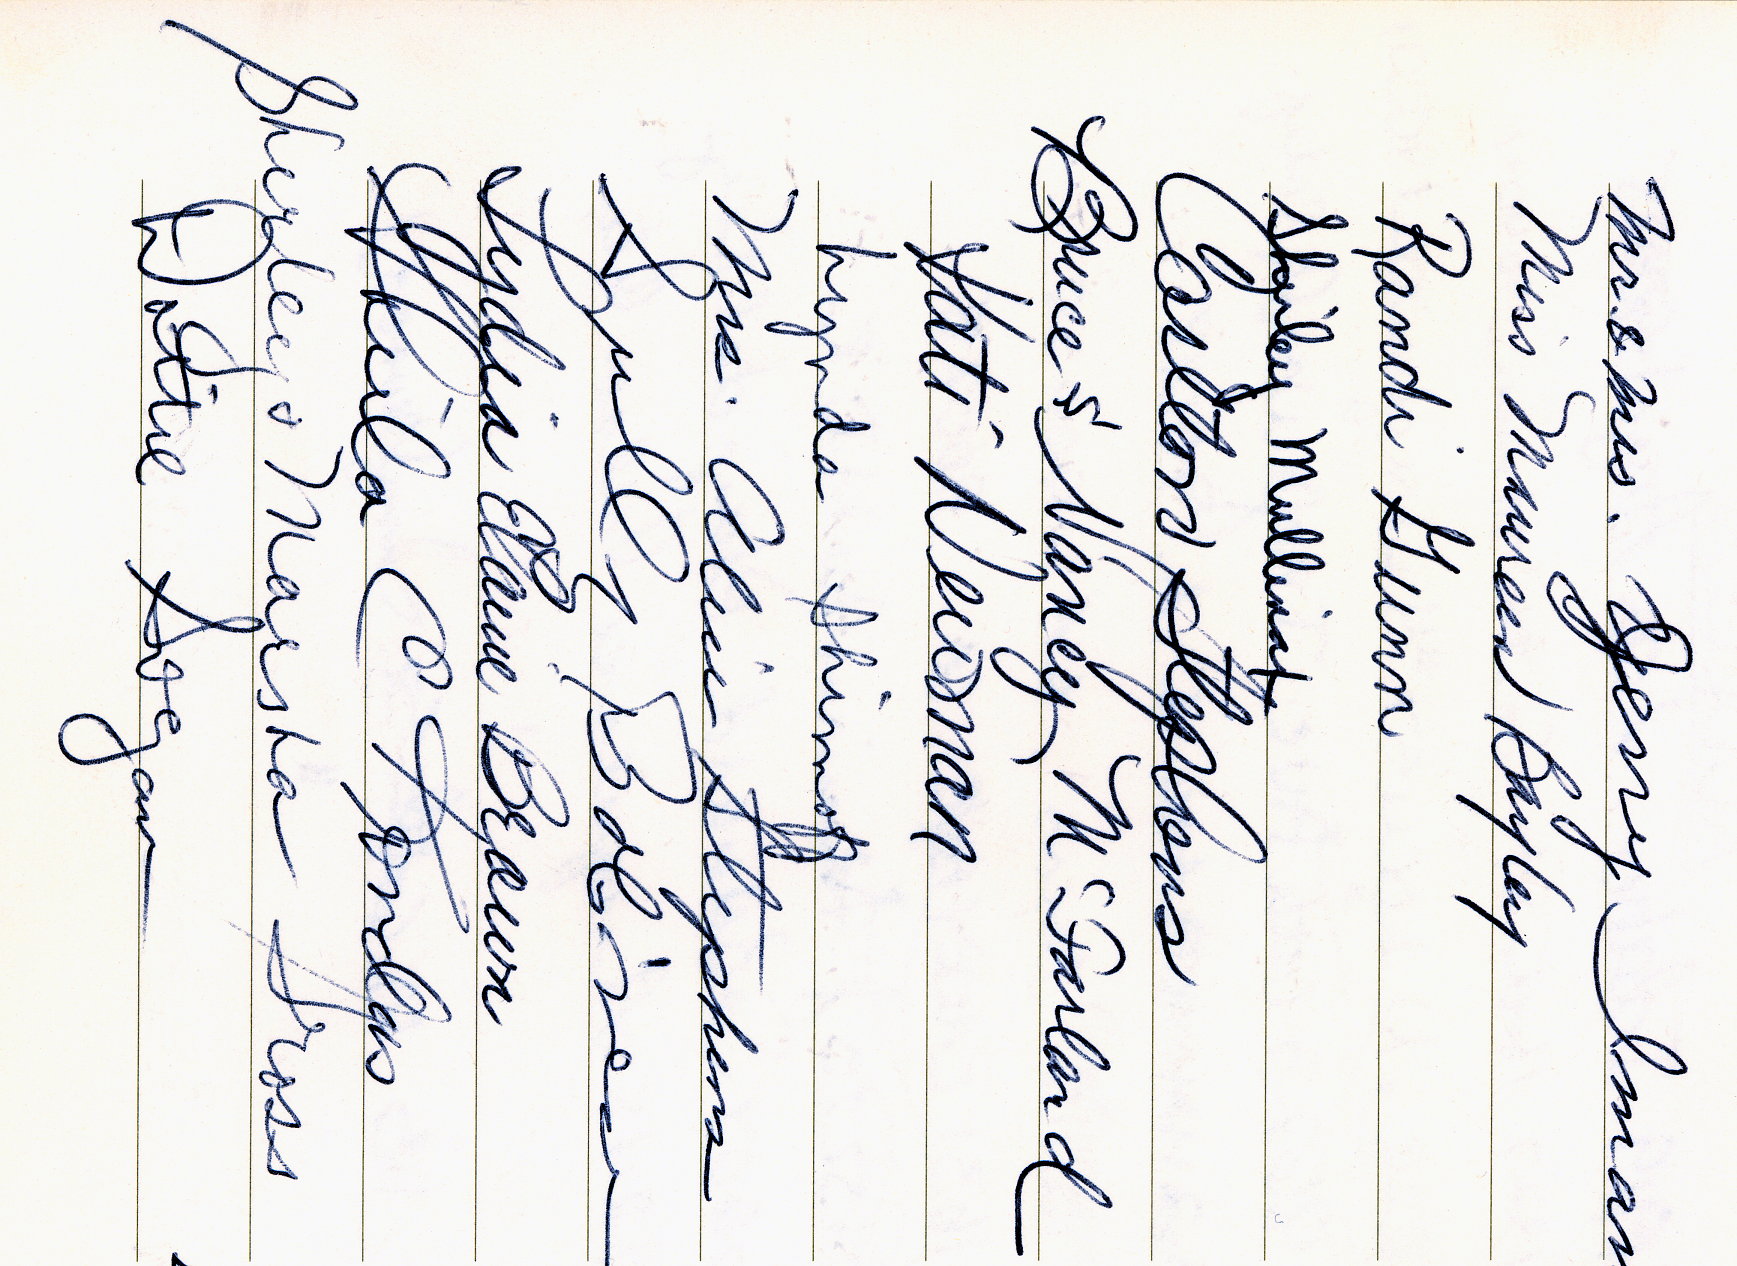 Mr. & Mrs. Jerry Inman
Miss Maureen Bayley
Randi Gunn
Shirley Mullinax
Carlton Stephens
Bruce & Nancy McFarland
Kati Newman
Lynda
Mrs. Alvin Stephens
Judy
Lydia Elaine Brown
Sheila C
Shirley & Marsha Gross
Dottie Logan